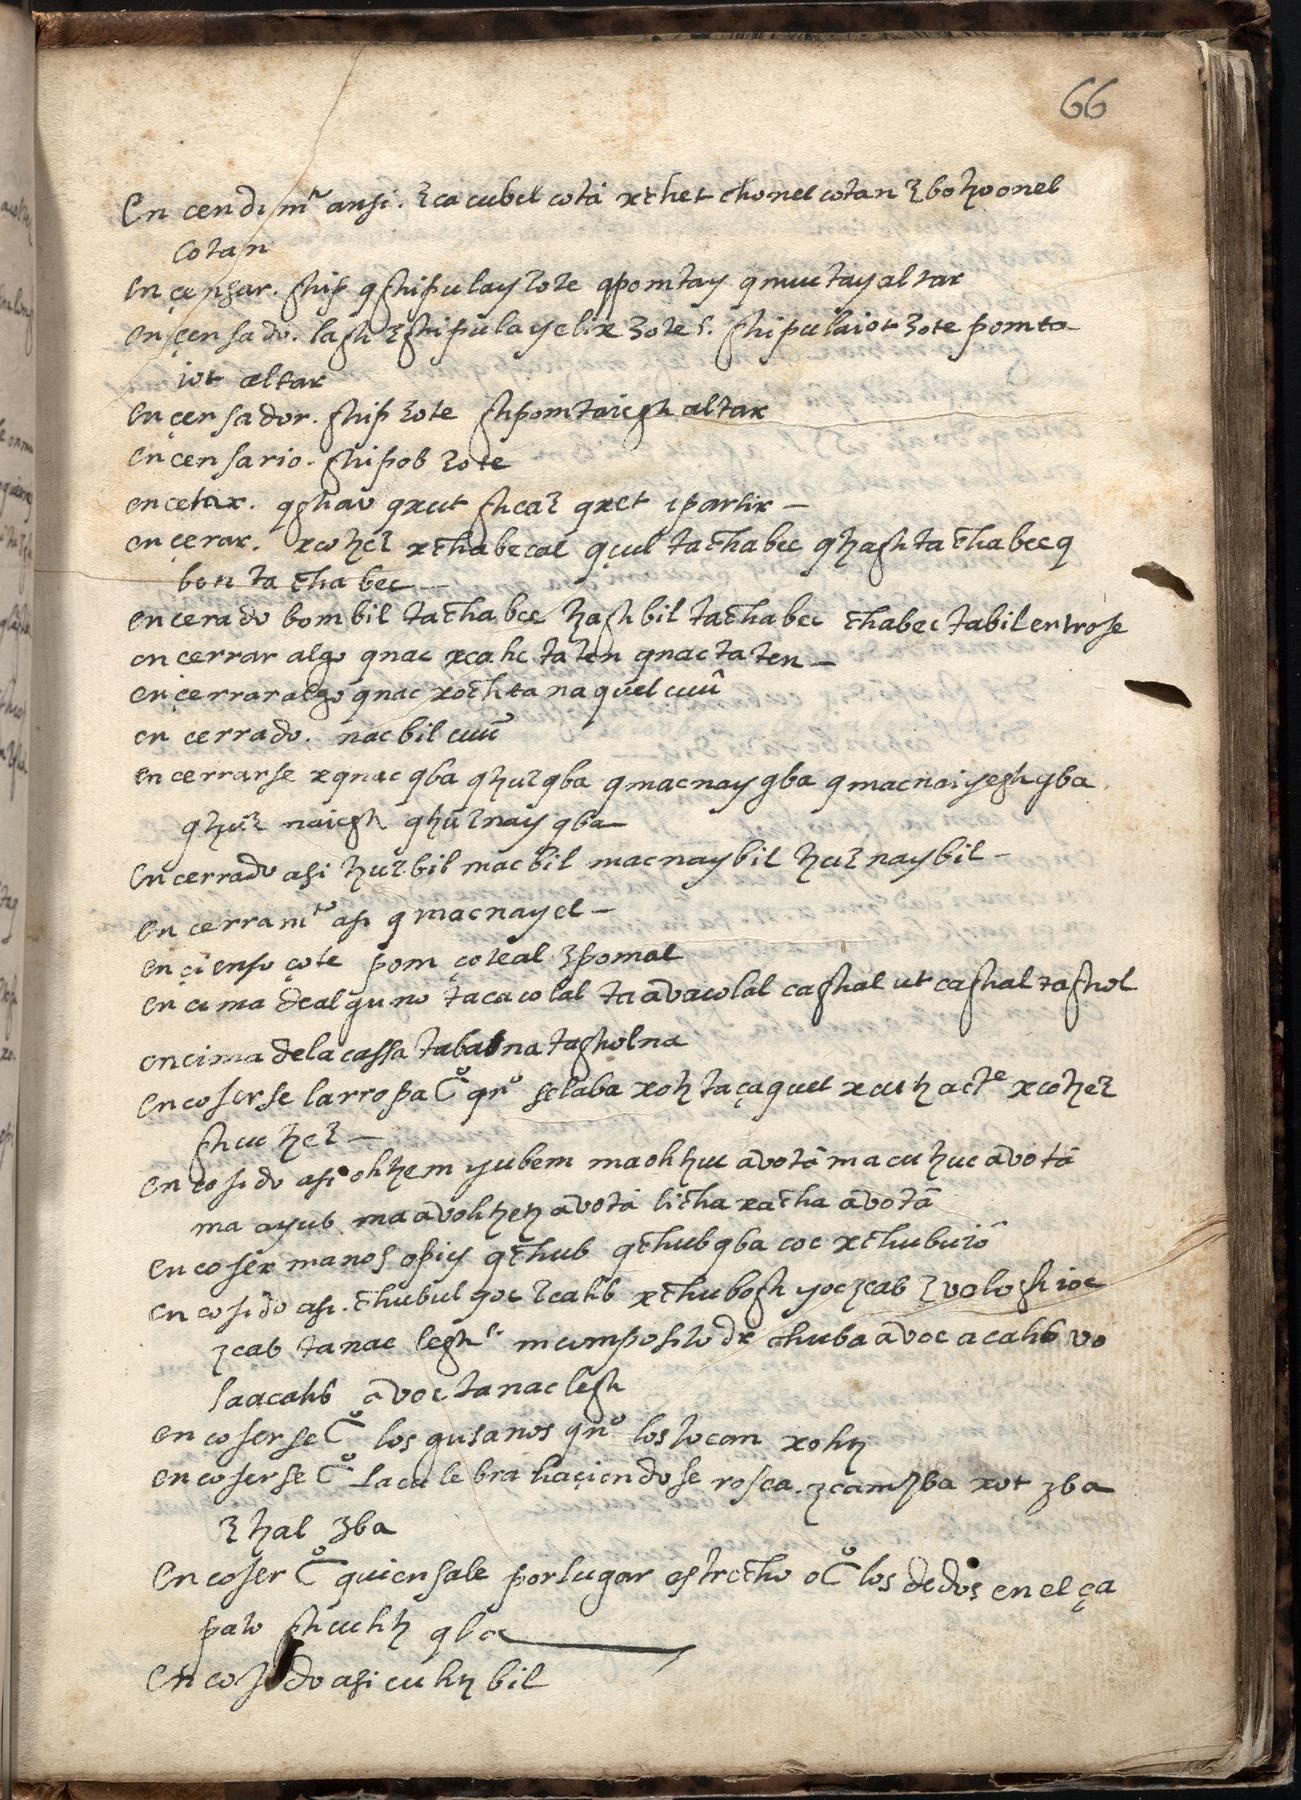 66
En cendimᵗᵒ ansi. ꜫca cubel cotā xc̄het chonel cotan ꜫboꜧoonel
Cotan
En çensar. ship qshipulay ꜫote qpomtay qmuutay altar
en çensado. lagh ꜫshipulayelix ꜫote s. shipulaiot ꜫote pomta
iot altar
en çensador. ship ꜫote shpomtaiegh altar
en censario. shipob ꜫote
en çetar. qghau qxut shcaꜫ qxet i partir —
en çerar. xcoꜧeꜫ xc̄habecal qçul tac̄habec qꜧagh tac̄habec q
bon ta c̄habec —
en cerado bombil tac̄habec ꜧaghbil tac̄habec c̄habectabil
en cerrar algo qnac xcahc ta ten qnac ta ten —
en çerrar algo qnac xoc̄hta na quel cuuū
en cerrado. nacbil cuuū
en cerrarse xqnac qba qꜧuꜫqba qmacnay qba qmacnaiyegh qba
qꜧuꜫ naiegh qꜧuꜫnay qba —
En cerrado asi ꜧuꜫbil macbil macnaybil ꜧuꜫnaybil —
en cerramᵗᵒ asi qmacnayel —
en çienso çote pom çoteal ꜫpomal
en cima de alguno tacacolal ta āvacolal cashal ut cashal tashol
encima dela cassa tabalna tagholna
en coserse larropa C̊ qnº selaba xoꜧ taçaquel xcuꜧ actᵉ xcoꜧeꜫ
shcuꜧeꜫ —
en cosido asi ohꜧem yubem maohꜧuc āvotā macuꜧuc āvotā
ma ayub ma āvohꜧeꜧ āvotā lic̄ha xac̄ha āvotā
en coser manos o pies qc̄hub qc̄hubqba coc xc̄hubuiō
en cosido asi. c̄hubul yoc ꜫcahb xc̄hubogh yoc ꜫcab ꜫvologh ioc
ꜫcab tanac legh s. in composito dr chuba āvoc acahb vo
laacahb āvoc tanac legh
en coserse C̊ los gusanos qnº los tocan xohꜧ
en coserse C̊ la culebra haçiendose rosca. ꜫcamꜫba xot ꜫba
ꜫꜧal ꜫba
En coser C̊ quien sale por lugar estrec̄ho o C̊ los dedos en el ça
pato shcuhꜧ qba
En cosido asi cuhꜧbil